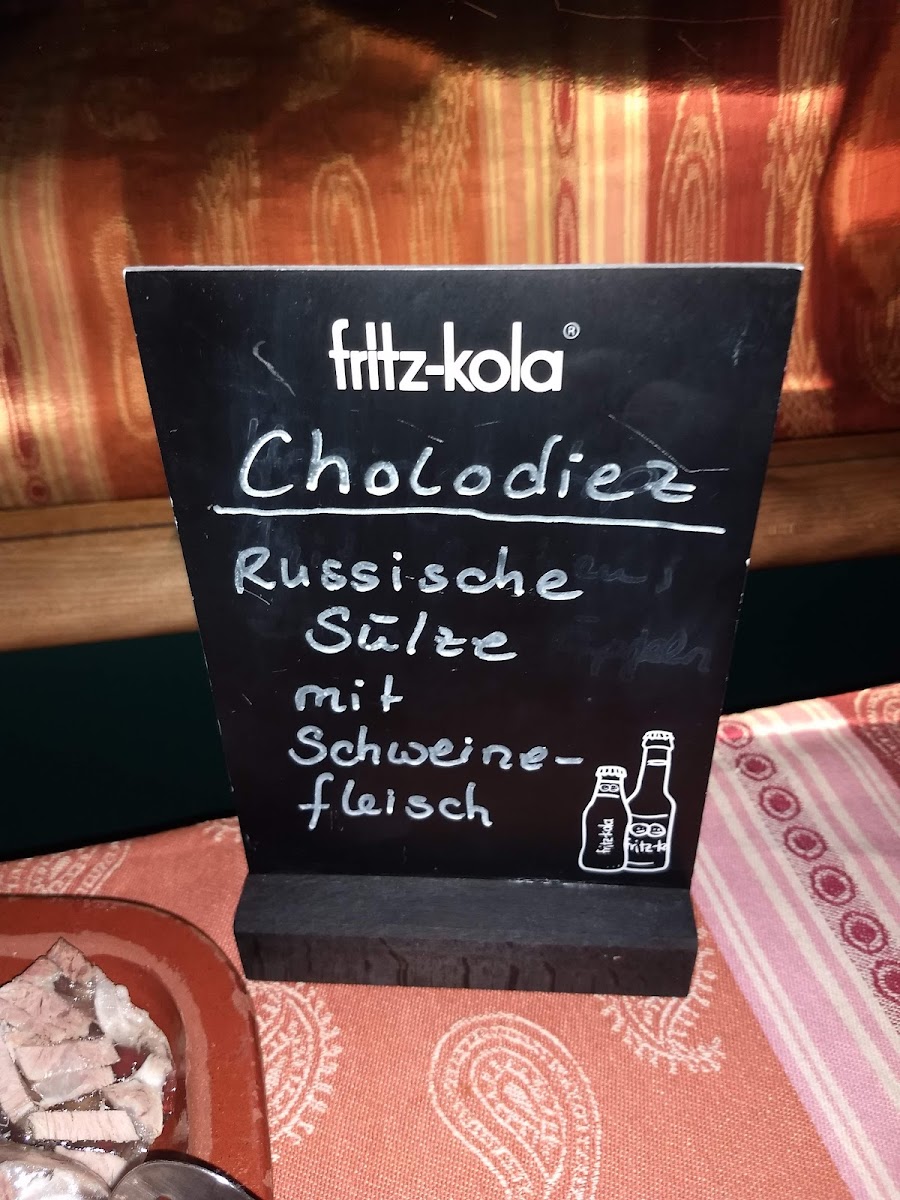 fritz-kola®
Cholodiez
Russische
Sülze
mit
Schweine-
fleisch
fritz-kola
fritz-k